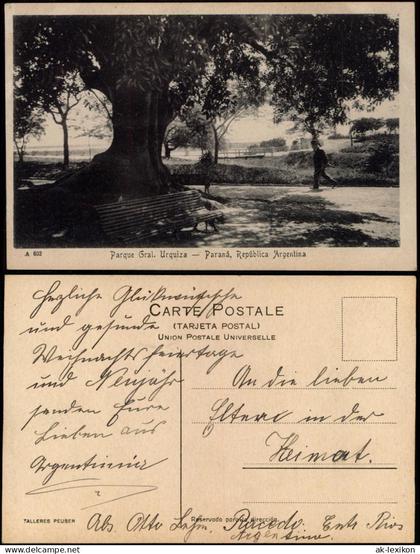 A 602
Parque Gral. Urquiza — Paraná, República Argentina
CARTE POSTALE
(TARJETA POSTAL)
UNION POSTALE UNIVERSELLE
Herzliche Glückwünsche
und gesunde
Weihnachtsfeiertage
und Neujahr
senden Eure
Lieben aus
Argentinien
An die lieben
Eltern in der
Heimat.
TALLERES PEUSER
Reservado para la dirección
Abs. Otto Racedo, Entre Rios
Argentina.
ak-lexikon
© ak-lexikon.com